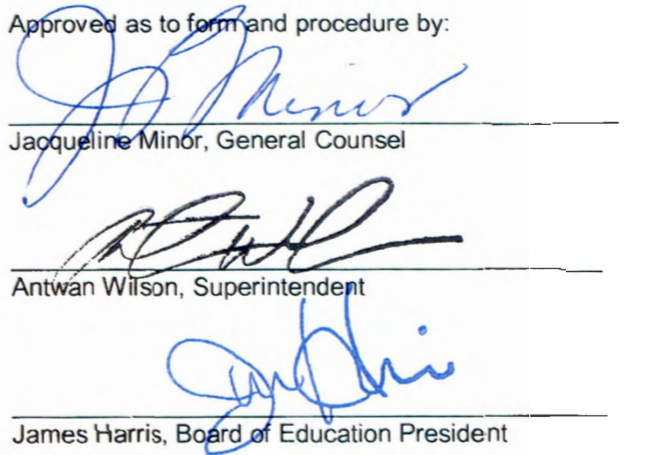 Approved as to form and procedure by:
J Minor
Jacqueline Minor, General Counsel
Antwan Wilson, Superintendent
James Harris, Board of Education President